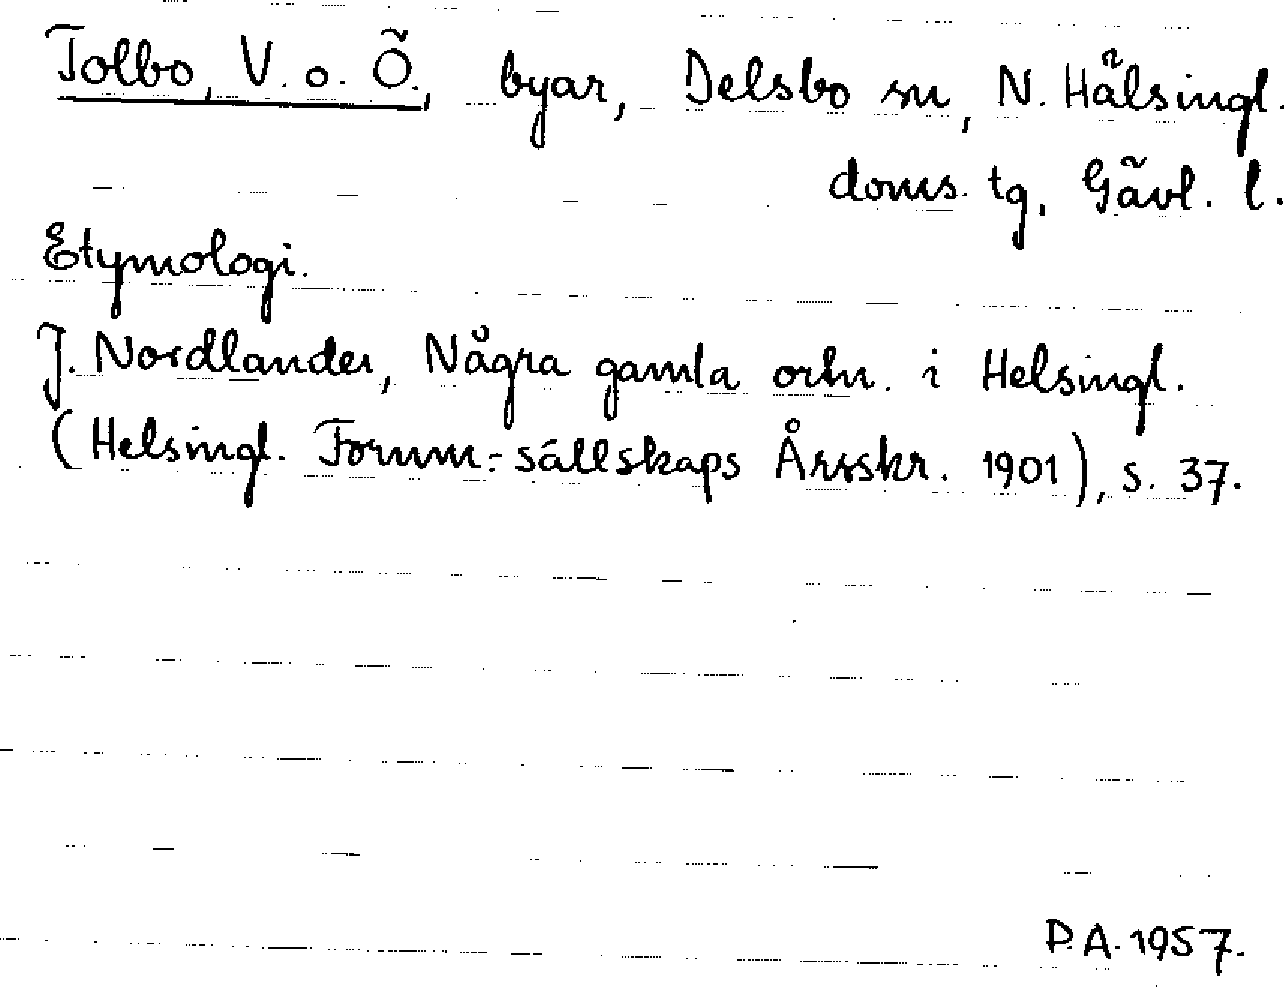 Tolbo, V. o. Ö., byar, Delsbo sn, N. Hälsingl.
doms. tg, Gävl. l.
Etymologi.
J. Nordlander, Några gamla ortn. i Helsingl.
(Helsingl. Fornm.-sällskaps Årsskr. 1901), s. 37.
P.A. 1957.